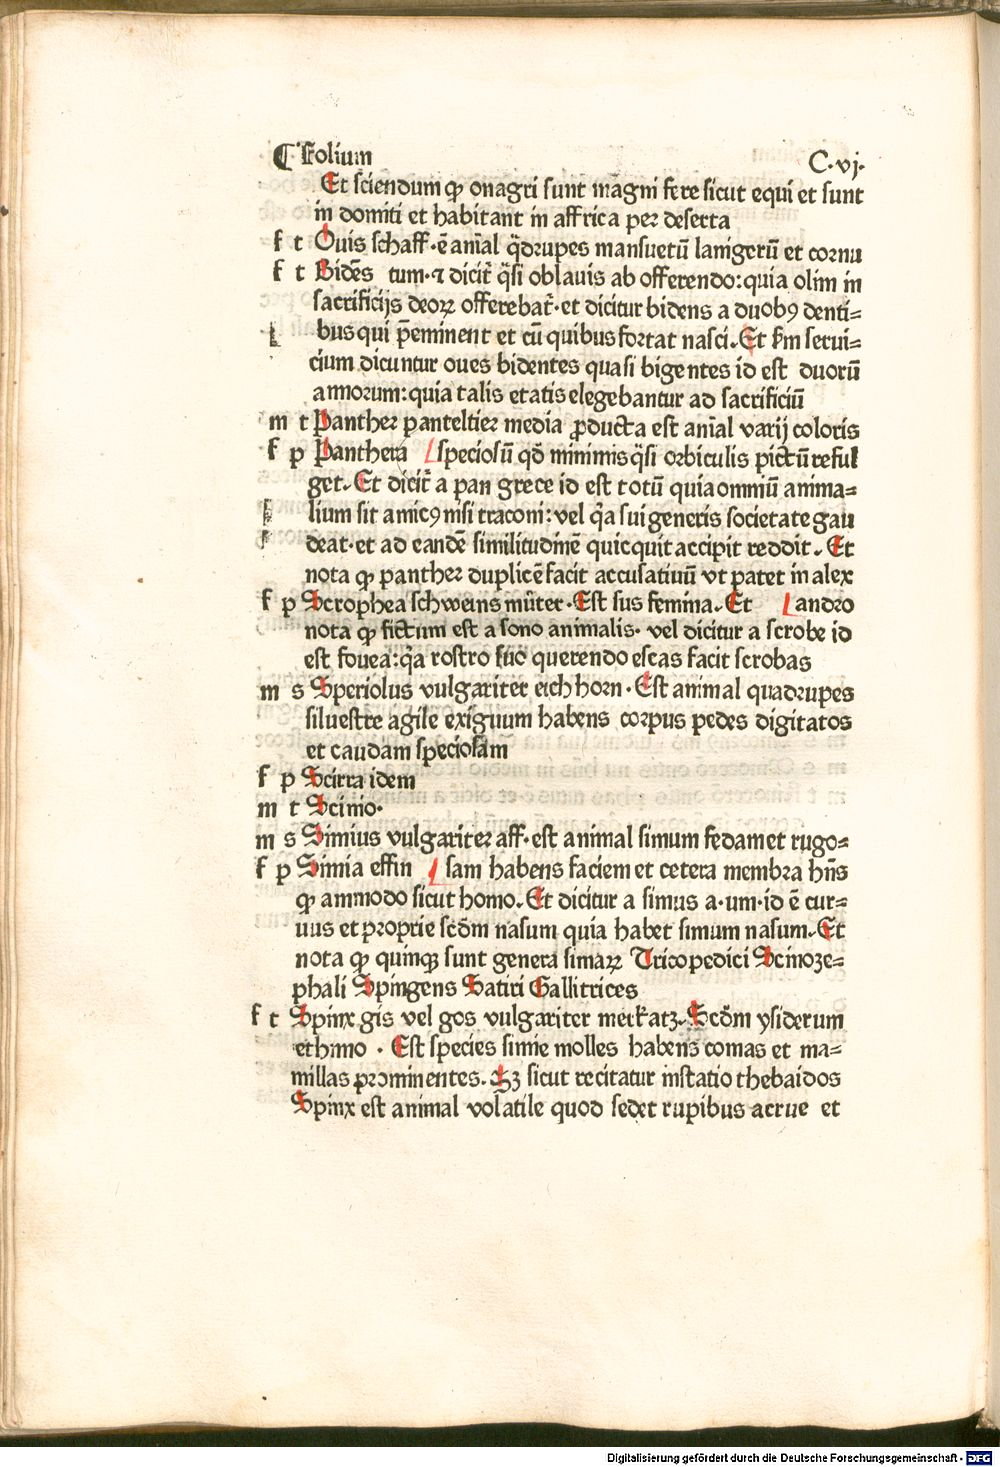 ⸿ Folium C·vj·
Et sciendum ꝙ onagri sunt magni fere sicut equi et sunt
in domiti et habitant in affrica per deserta
f t Ouis schaff·ē anīal q̄drupes mansuetū lanigerū et cornu
f t Bidēs tum·⁊ dicit̄ q̄si oblauis ab offerendo:quia olim in
sacrificijs deoꝝ offerebat̄·et dicitur bidens a duobꝯ denti=
bus qui p̄eminent et cū quibus fortat nasci·Et ẜm serui=
cium dicuntur oues bidentes quasi bigentes id est duorū
annorum:quia talis etatis elegebantur ad sacrificiū
m t Panther panteltier media ꝓducta est anīal varij coloris
f p Panthera speciosū qd̄ minimis q̄si orbiculis pictū reful
get·Et dicit̄ a pan grece id est totū quia omniū anima=
lium sit amicꝯ nisi traconi:vel q̄a sui generis societate gau
deat·et ad eandē similitudinē quicquit accipit reddit·Et
nota ꝙ panther duplicē facit accusatiuū vt patet in alex
f p Scrophea schweins mūter·Est sus femina·Et andro
nota ꝙ fictum est a sono animalis·vel dicitur a scrobe id
est fouea:q̄a rostro suo querendo escas facit scrobas
m s Speriolus vulgariter eichhorn·Est animal quadrupes
siluestre agile exiguum habens corpus pedes digitatos
et caudam speciosam
f p Scirra idem
m t Scimio·
m s Simius vulgariter aff·est animal simum fedam et rugo=
f p Simia effin sam habens faciem et cetera membra hn̄s
ꝙ ammodo sicut homo·Et dicitur a simus a·um·id ē cur=
uus et proprie scd̄m nasum quia habet simum nasum·Et
nota ꝙ quinqꝫ sunt genera simaꝝ Tricopedici Scinoze=
phali Spingens Satiri Gallitrices
f t Spinx gis vel gos vulgariter merkatz·Scd̄m ysiderum
ethimo · Est species simie molles habens comas et ma=
millas prominentes·Sꝫ sicut recitatur in statio thebaidos
Spinx est animal volatile quod sedet rupibus acrue et
Digitalisierung gefördert durch die Deutsche Forschungsgemeinschaft - DFG